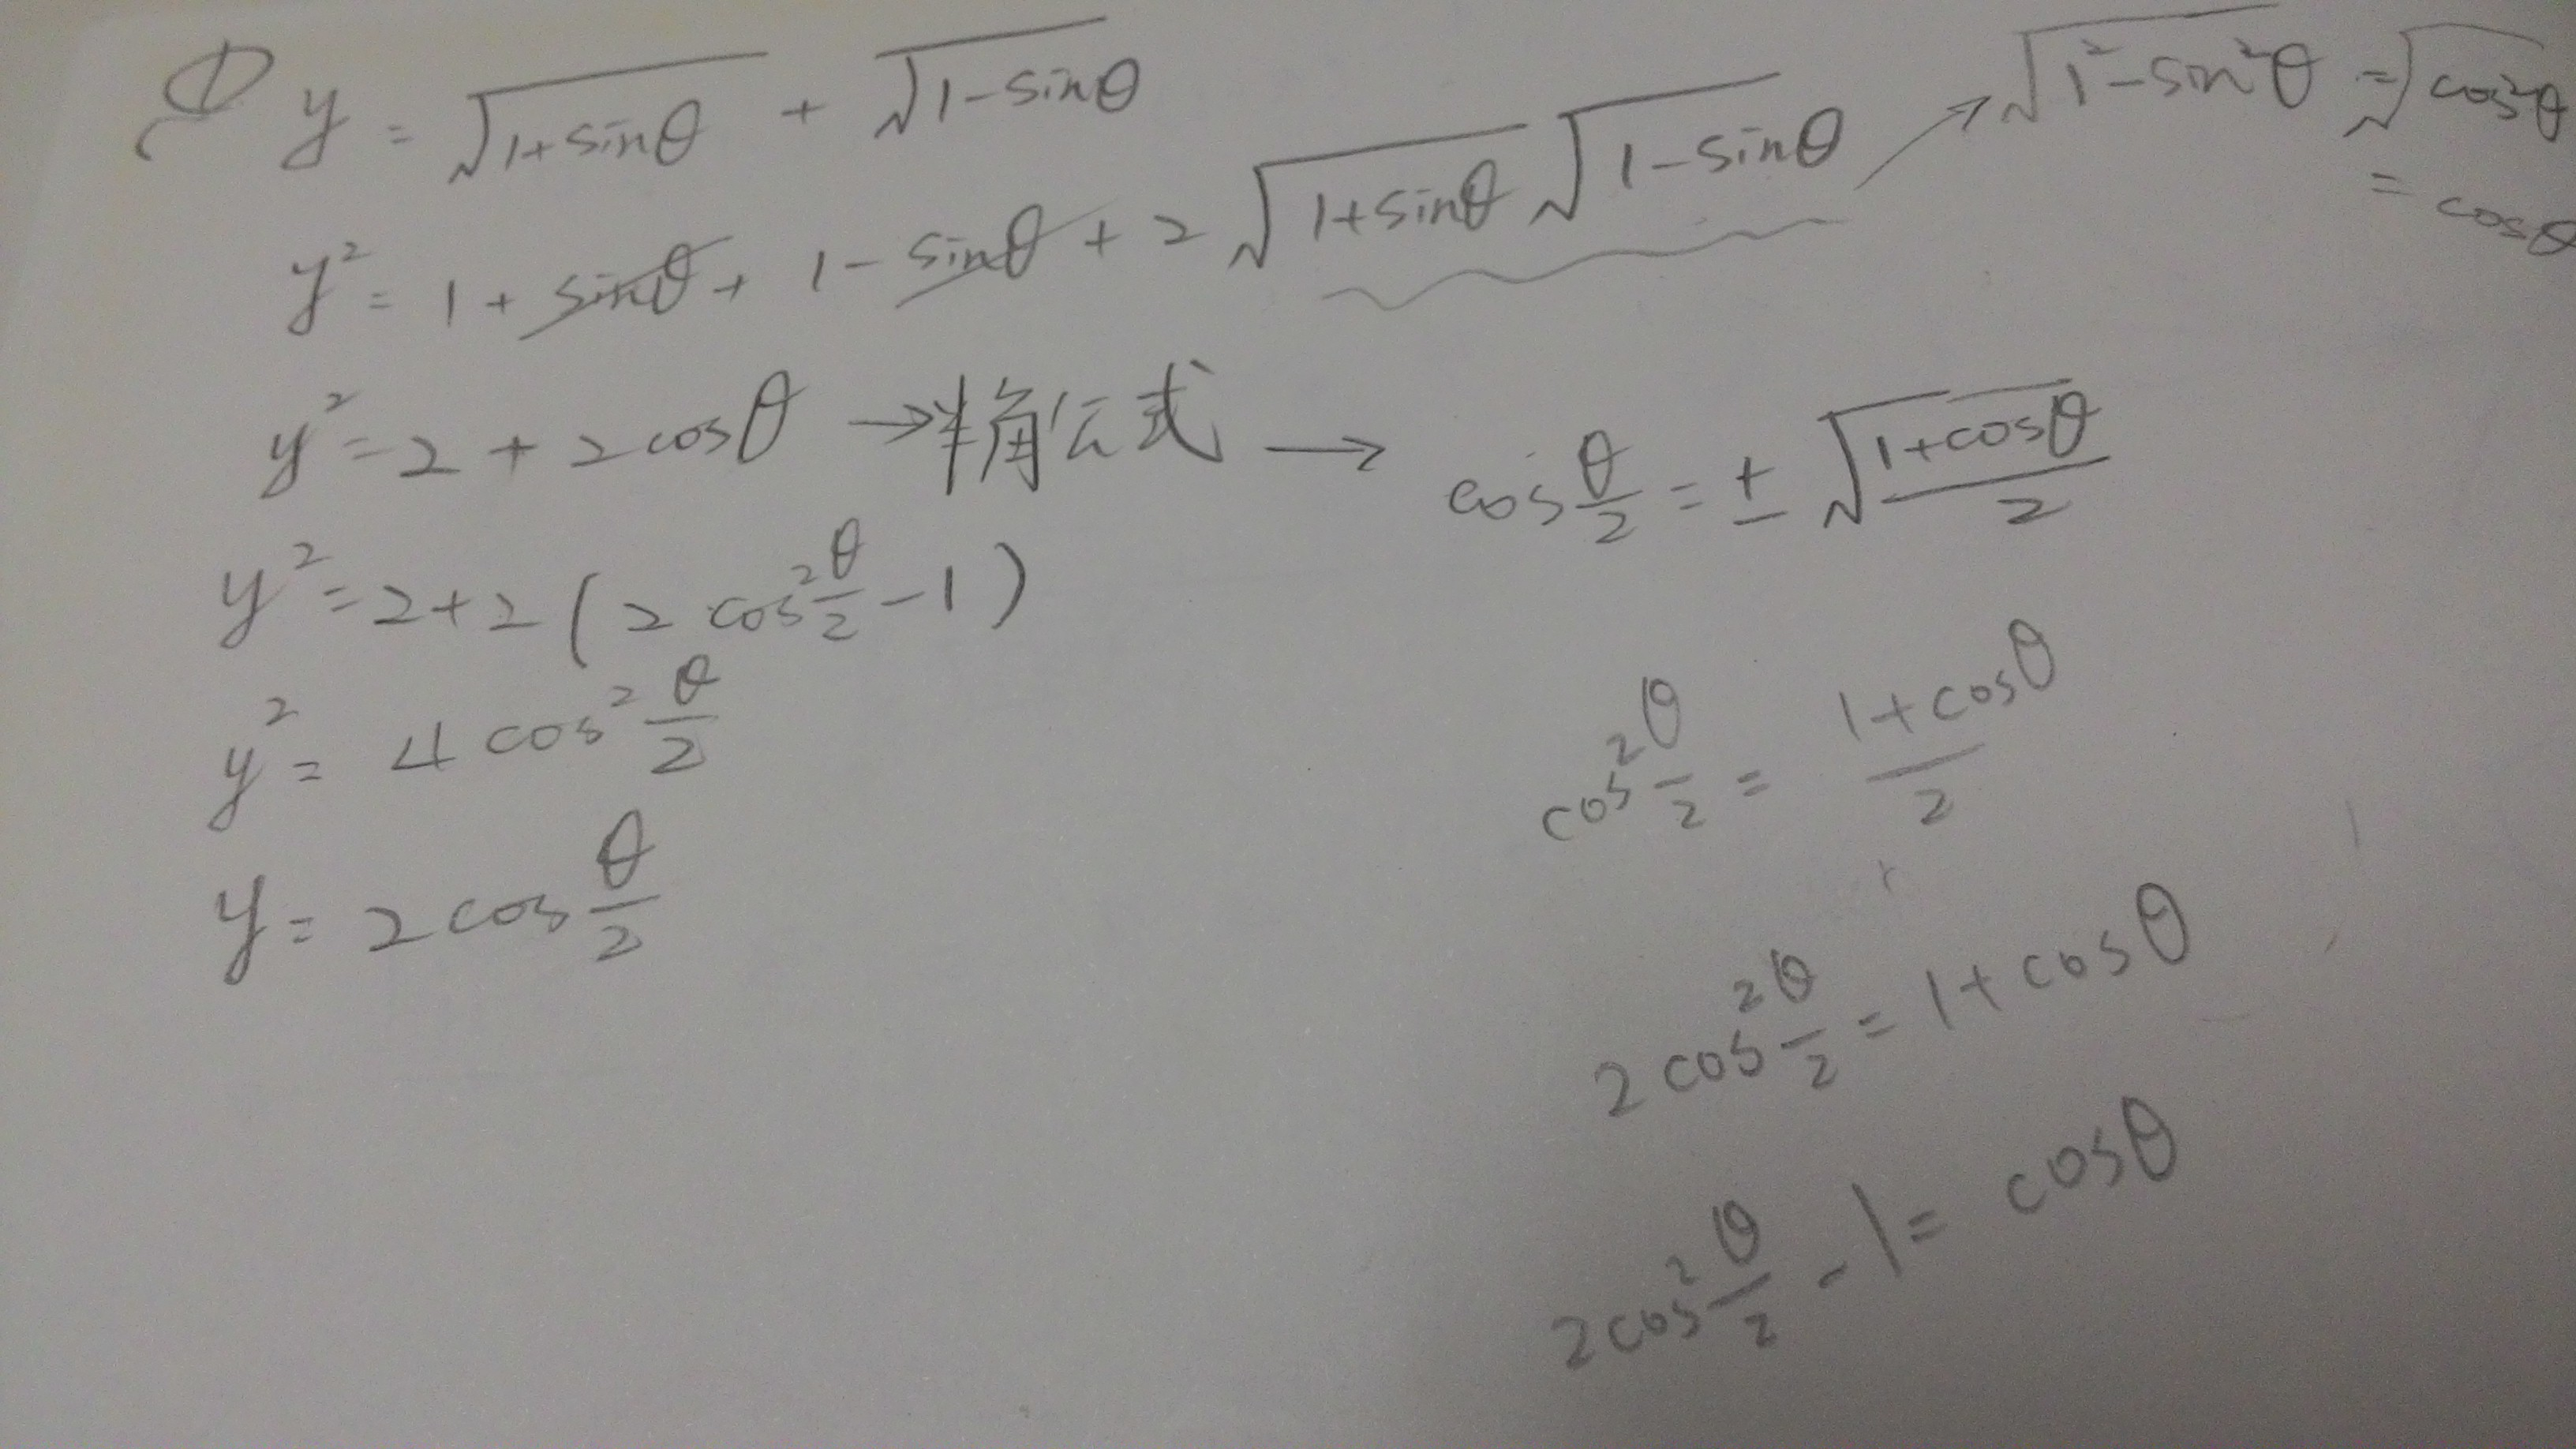 ① y = √(1+sinθ) + √(1-sinθ)
y² = 1 + sinθ + 1 - sinθ + 2 √(1+sinθ) √(1-sinθ) → √(1²-sin²θ) = √(cos²θ)
= cosθ
y² = 2 + 2cosθ → 半角公式 → cos θ/2 = ± √((1+cosθ)/2)
y² = 2+2(2cos² θ/2 - 1)
y² = 4cos² θ/2
y = 2cos θ/2
cos² θ/2 = (1+cosθ)/2
2cos² θ/2 = 1+cosθ
2cos² θ/2 - 1 = cosθ